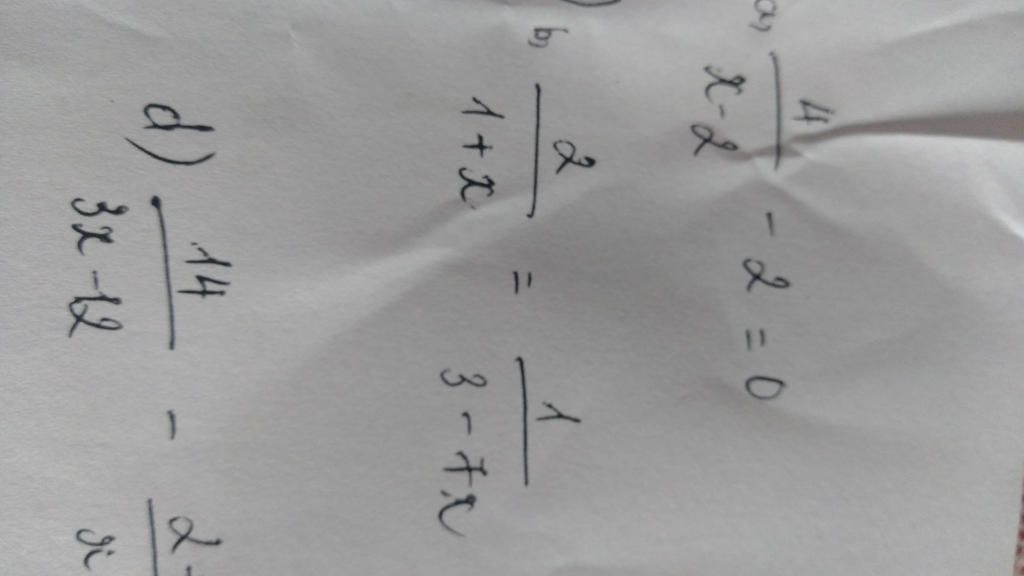 a, 4/(x-2) - 2 = 0
b, 2/(1+x) = 1/(3-7x)
d) 14/(3x-12) - 2